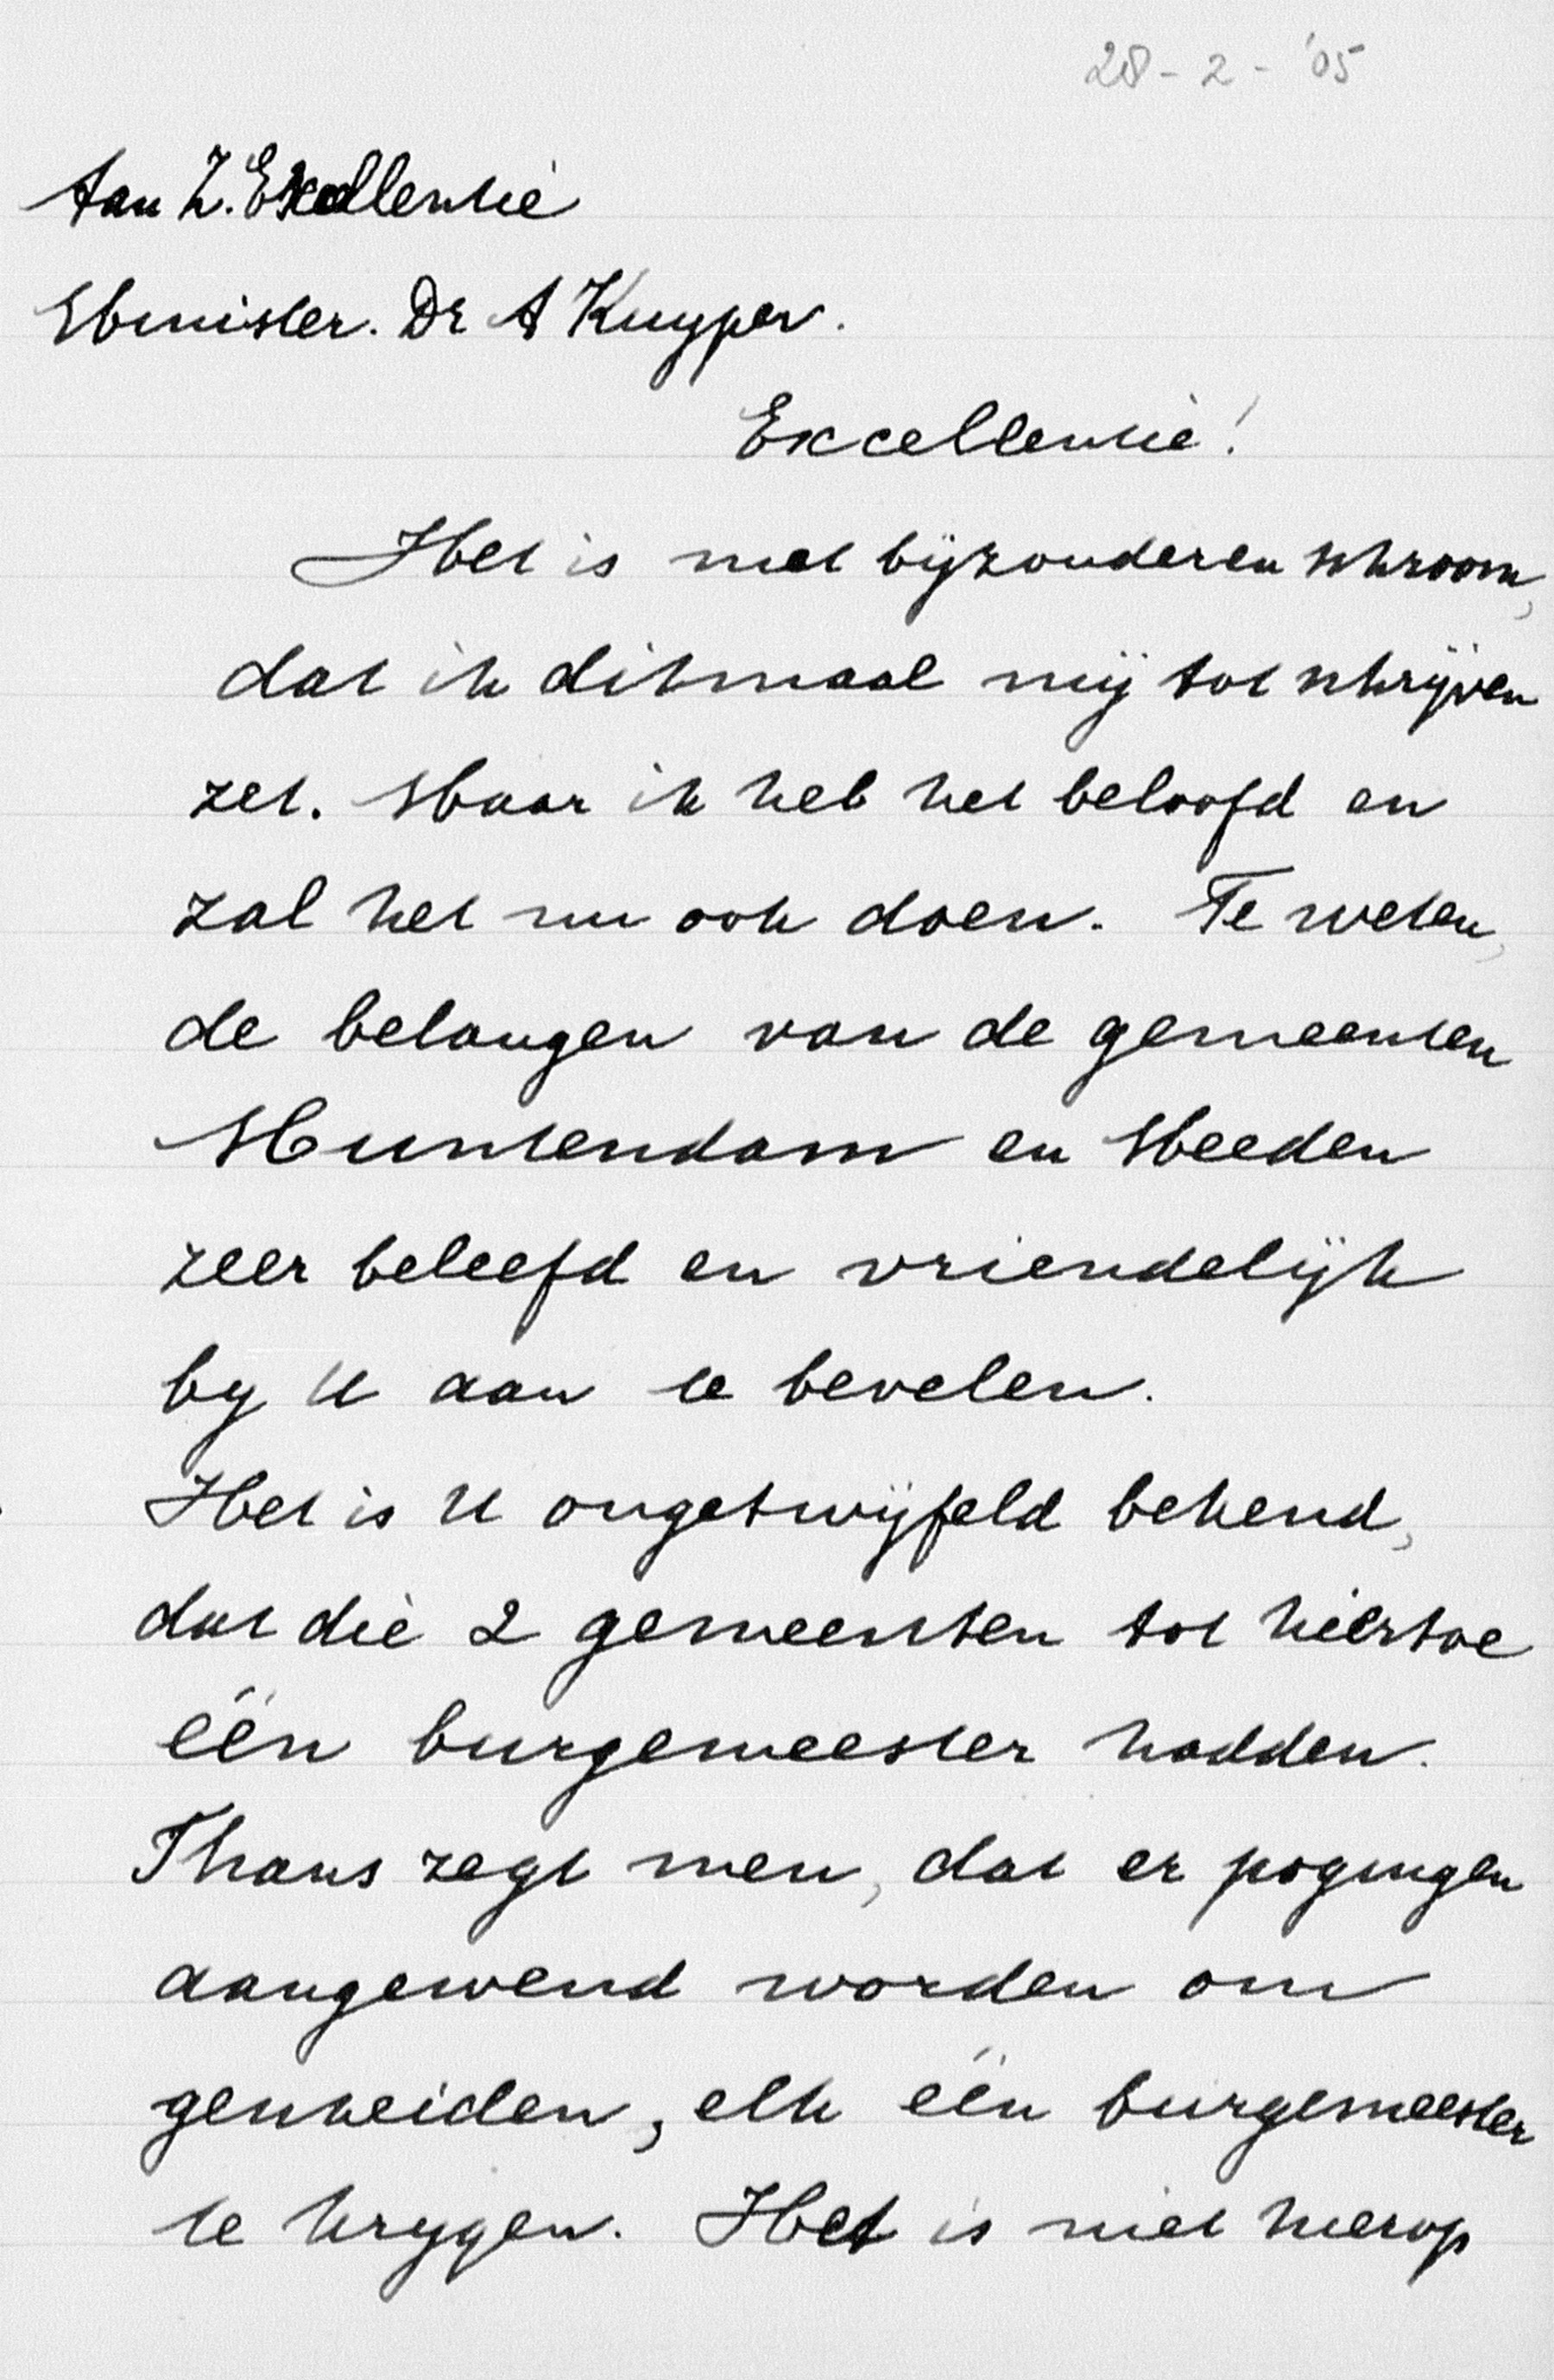 28-2-'05
Aan Z. Excellentie
Minister. Dr A Kuyper.
Excellentie!
Het is met bijzonderen schroom,
dat ik ditmaal mij tot schrijven
zet. Maar ik heb het beloofd en
zal het nu ook doen. Te weten,
de belangen van de gemeenten
Muntendam en Meeden
zeer beleefd en vriendelijk
by U aan te bevelen.
Het is U ongetwijfeld bekend,
dat die 2 gemeenten tot hiertoe
één burgemeester hadden.
Thans zegt men, dat er pogingen
aangewend worden om
gescheiden, elk één burgemeester
te krygen. Het is niet hierop